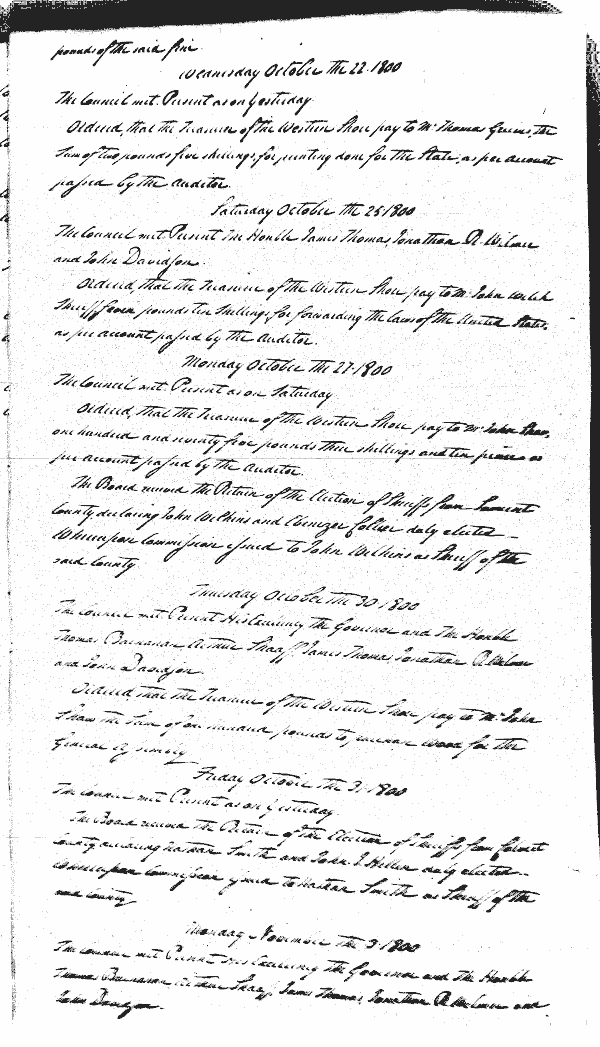 pounds of the said fine
Wednesday October the 22. 1800
The Council met. Present as on Yesterday
Ordered, that the Treasurer of the Western Shore pay to Mr. Thomas Green, the
Sum of two pounds five shillings, for printing done for the State, as per account
passed by the Auditor.
Saturday October the 25 1800
The Council met. Present The Honble James Thomas, Jonathan R. Wilmer
and John Davidson.
Ordered, that the Treasurer of the Western Shore pay to Mr. John Welch
Sheriff seven pounds ten shillings, for forwarding the laws of the United States,
as per account passed by the Auditor.
Monday October the 27. 1800
The Council met. Present as on Saturday
Ordered, that the Treasurer of the Western Shore pay to Mr. John Shaw,
one hundred and seventy five pounds three shillings and ten pence as
per account passed by the Auditor.
The Board received the Return of the Election of Sheriffs from Somerset
County, declaring John Wilkins and Ebenezer Collier duly elected
Whereupon Commission issued to John Wilkins as Sheriff of the
said County.
Thursday October the 30 1800
The Council met. Present His Excellency the Governor and The Honble
Thomas Buchanan Arthur Shaaff, James Thomas, Jonathan R. Wilmer
and John Davidson.
Ordered, that the Treasurer of the Western Shore pay to Mr. John
Shaw the Sum of one hundred pounds to purchase wood for the
General Assembly
Friday October the 31. 1800
The Council met Present as on Yesterday
The Board received the Return of the Election of Sheriffs from Calvert
County declaring Nathan Smith and John I. Hellen duly elected
Whereupon Commission issued to Nathan Smith as Sheriff of the
said County
Monday November the 3. 1800
The Council met Present His Excellency the Governor and the Honble
Thomas Buchanan Arthur Shaaff, James Thomas, Jonathan R. Wilmer and
John Davidson.